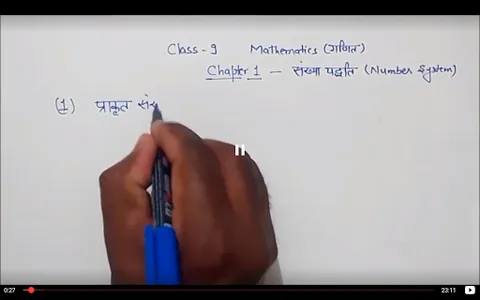 Class - 9 Mathematics (गणित)
Chapter 1 - संख्या पद्धति (Number System)
(1) प्राकृत
0:27 23:11